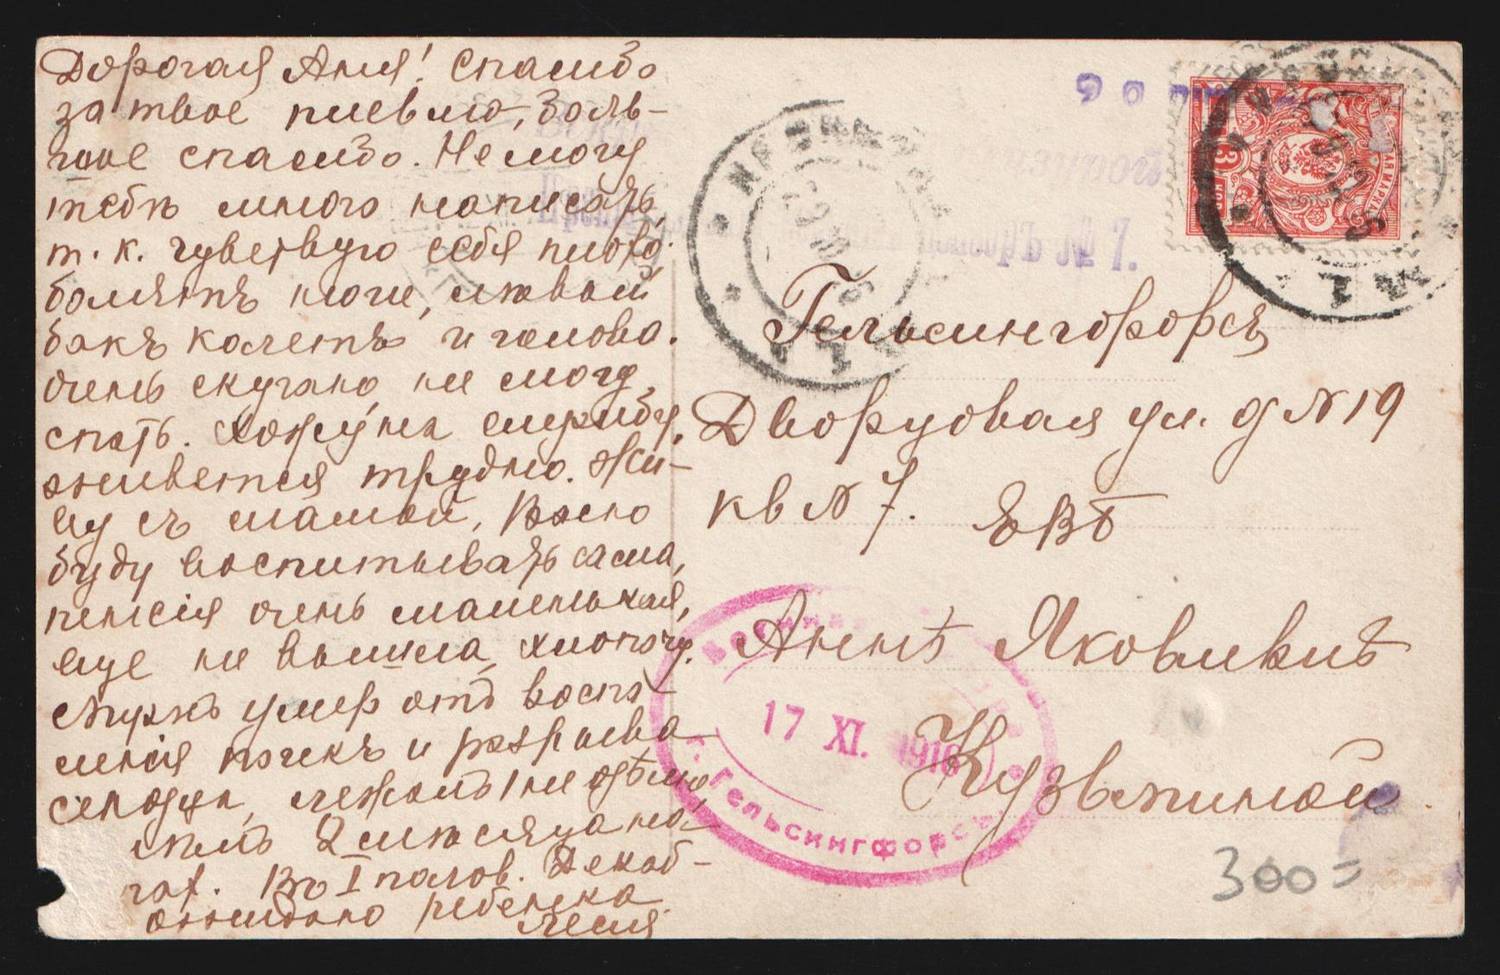 Дорогая Аня! Спасибо
за твое письмо, боль-
шое спасибо. Не могу
тебѣ много написать,
т. к. чувствую себя плохо
болятъ ноги, лѣвый
бокъ колетъ и голова.
очень скучаю не могу
спать. Хожу на службу,
живется трудно. Жи-
ву съ мамой,
буду воспитывать сама,
пенсія очень маленькая,
еще не вышла, хлопочу.
Мужъ умер отъ воспа-
ленія почекъ и разрыва
сердца, лежалъ
2 мѣсяца на
Въ I полов. Декаб-
ожидаю ребенка
Гельсингфорсъ
Дворцовая ул. д N 19
кв N 7. ЕВБ
Аннѣ Яковлевнѣ
Кузьминой
№ 7.
17 XI. 1916
г. Гельсингфорсъ
300=